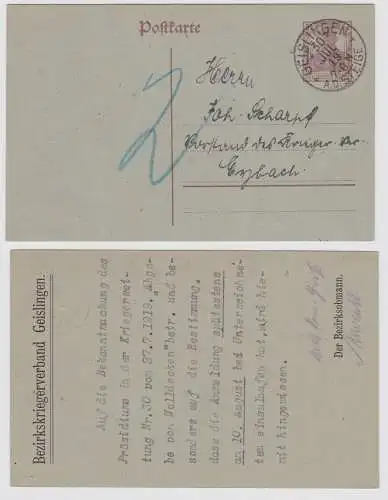 Postkarte
GEISLINGEN
30 JUL
A.D. STEIGE
2
Herrn
Joh. Scharpf
Vorstand des Krieger-Ver.
Ezbach
Bezirkskriegerverband Geislingen.
Auf die Bekanntmachung des
Präsidiums in der Kriegerzei-
tung Nr.30 vom 27.7.1919. "Abga-
be von Wolldecken" betr. und be-
sonders auf die Bestimmung,
dass die Anmeldung spätestens
an 10. August bei Unterzeichne-
tem einzulaufen hat, wird hie-
mit hingewiesen.
Der Bezirksobmann.